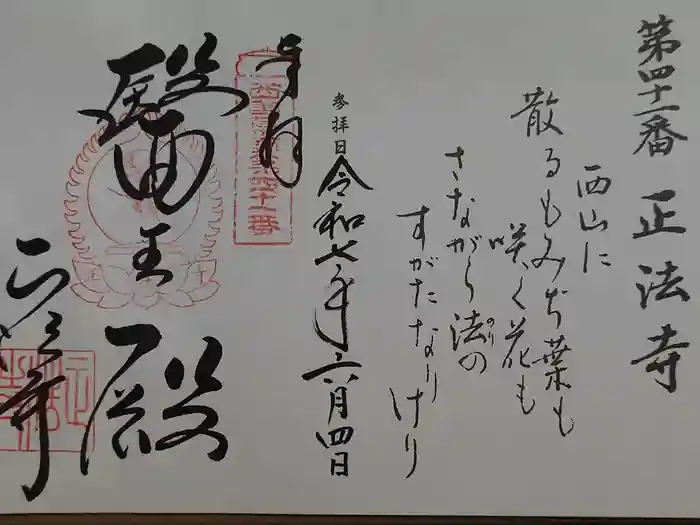 第四十一番 正法寺
西山に
散るもみぢ葉も
咲く花も
さながら法の
のり
すがたなりけり
参拝日 令和七年六月四日
奉拝
西国薬師第四十一番
醫王殿
正法寺